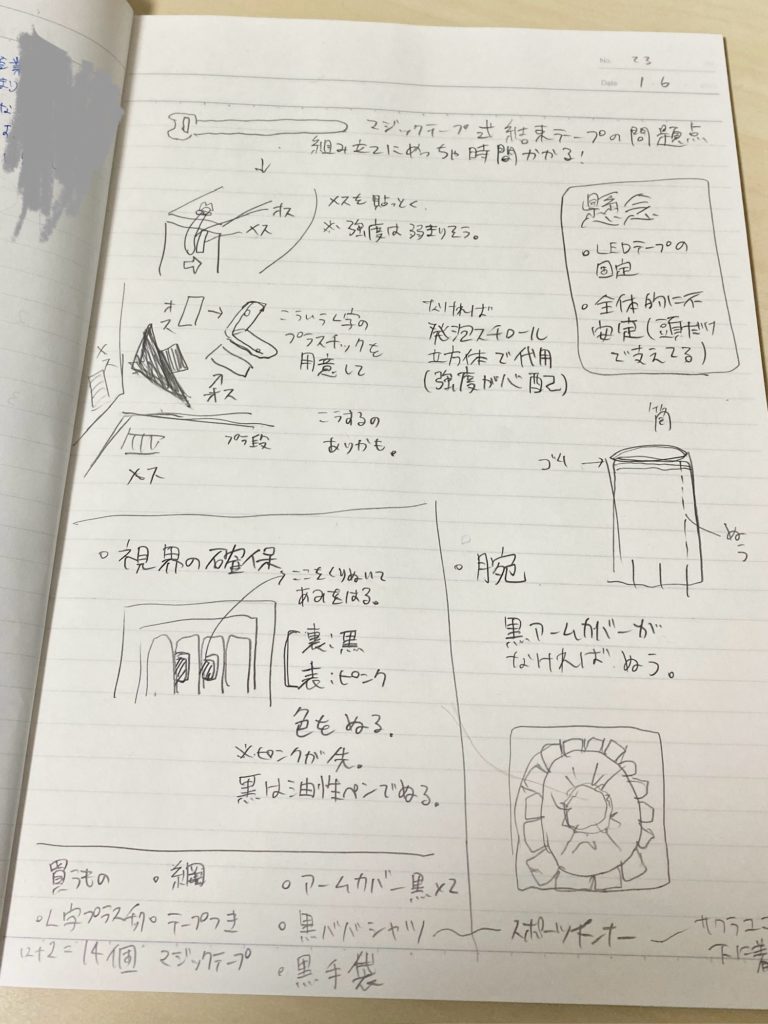 No. 23
Date 1.6
マジックテープ式結束テープの問題点
組み立てにめっちゃ時間かかる!
↓
オス
メス
メスを貼っとく
※強度は弱まりそう。
懸念
・LEDテープの
固定
・全体的に不
安定(頭だけ
で支えてる)
オス
メス
オス
こういうL字の
プラスチックを
用意して
なければ
発泡スチロール
立方体で代用
(強度が心配)
プラ段
メス
こうするの
ありかも。
筒
ゴム→
ぬう
・視界の確保
ここをくりぬいて
あみをはる。
裏:黒
表:ピンク
色をぬる。
※ピンクが先。
黒は油性ペンでぬる。
・腕
黒アームカバーが
なければぬう。
買うもの
・L字プラスチック
12+2=14個
・網
・テープつき
マジックテープ
・アームカバー黒×2
・黒ババシャツ
・黒手袋
スポーツインナー
下に着